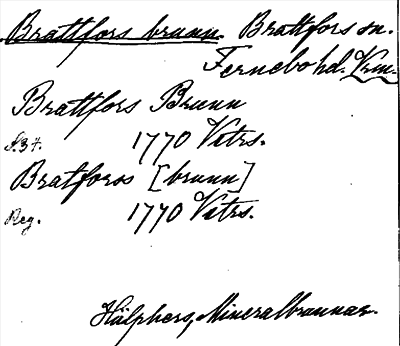 Brattfors brunn. Brattfors sn.
Fernebo hd. Vrm.
Brattfors Brunn
s. 34. 1770 Vetrs.
Bratforss [brunn]
Reg. 1770 Vetrs.
Hälphers, Mineralbrunnar.